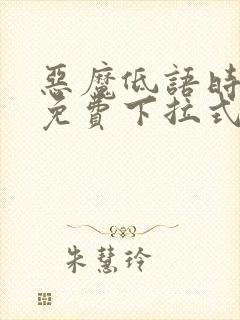 惡魔低語時
免費下拉式
朱慧玲